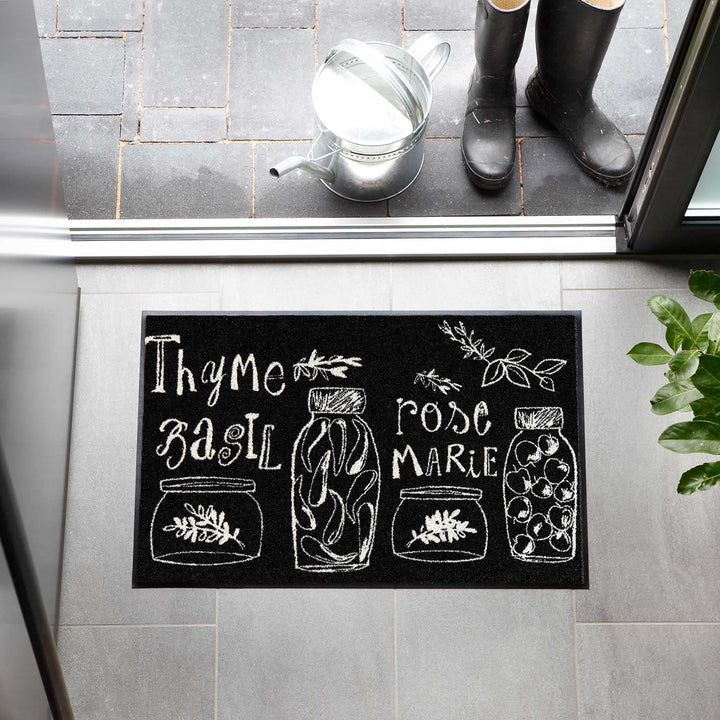 Thyme
BasiL
rose
MARiE